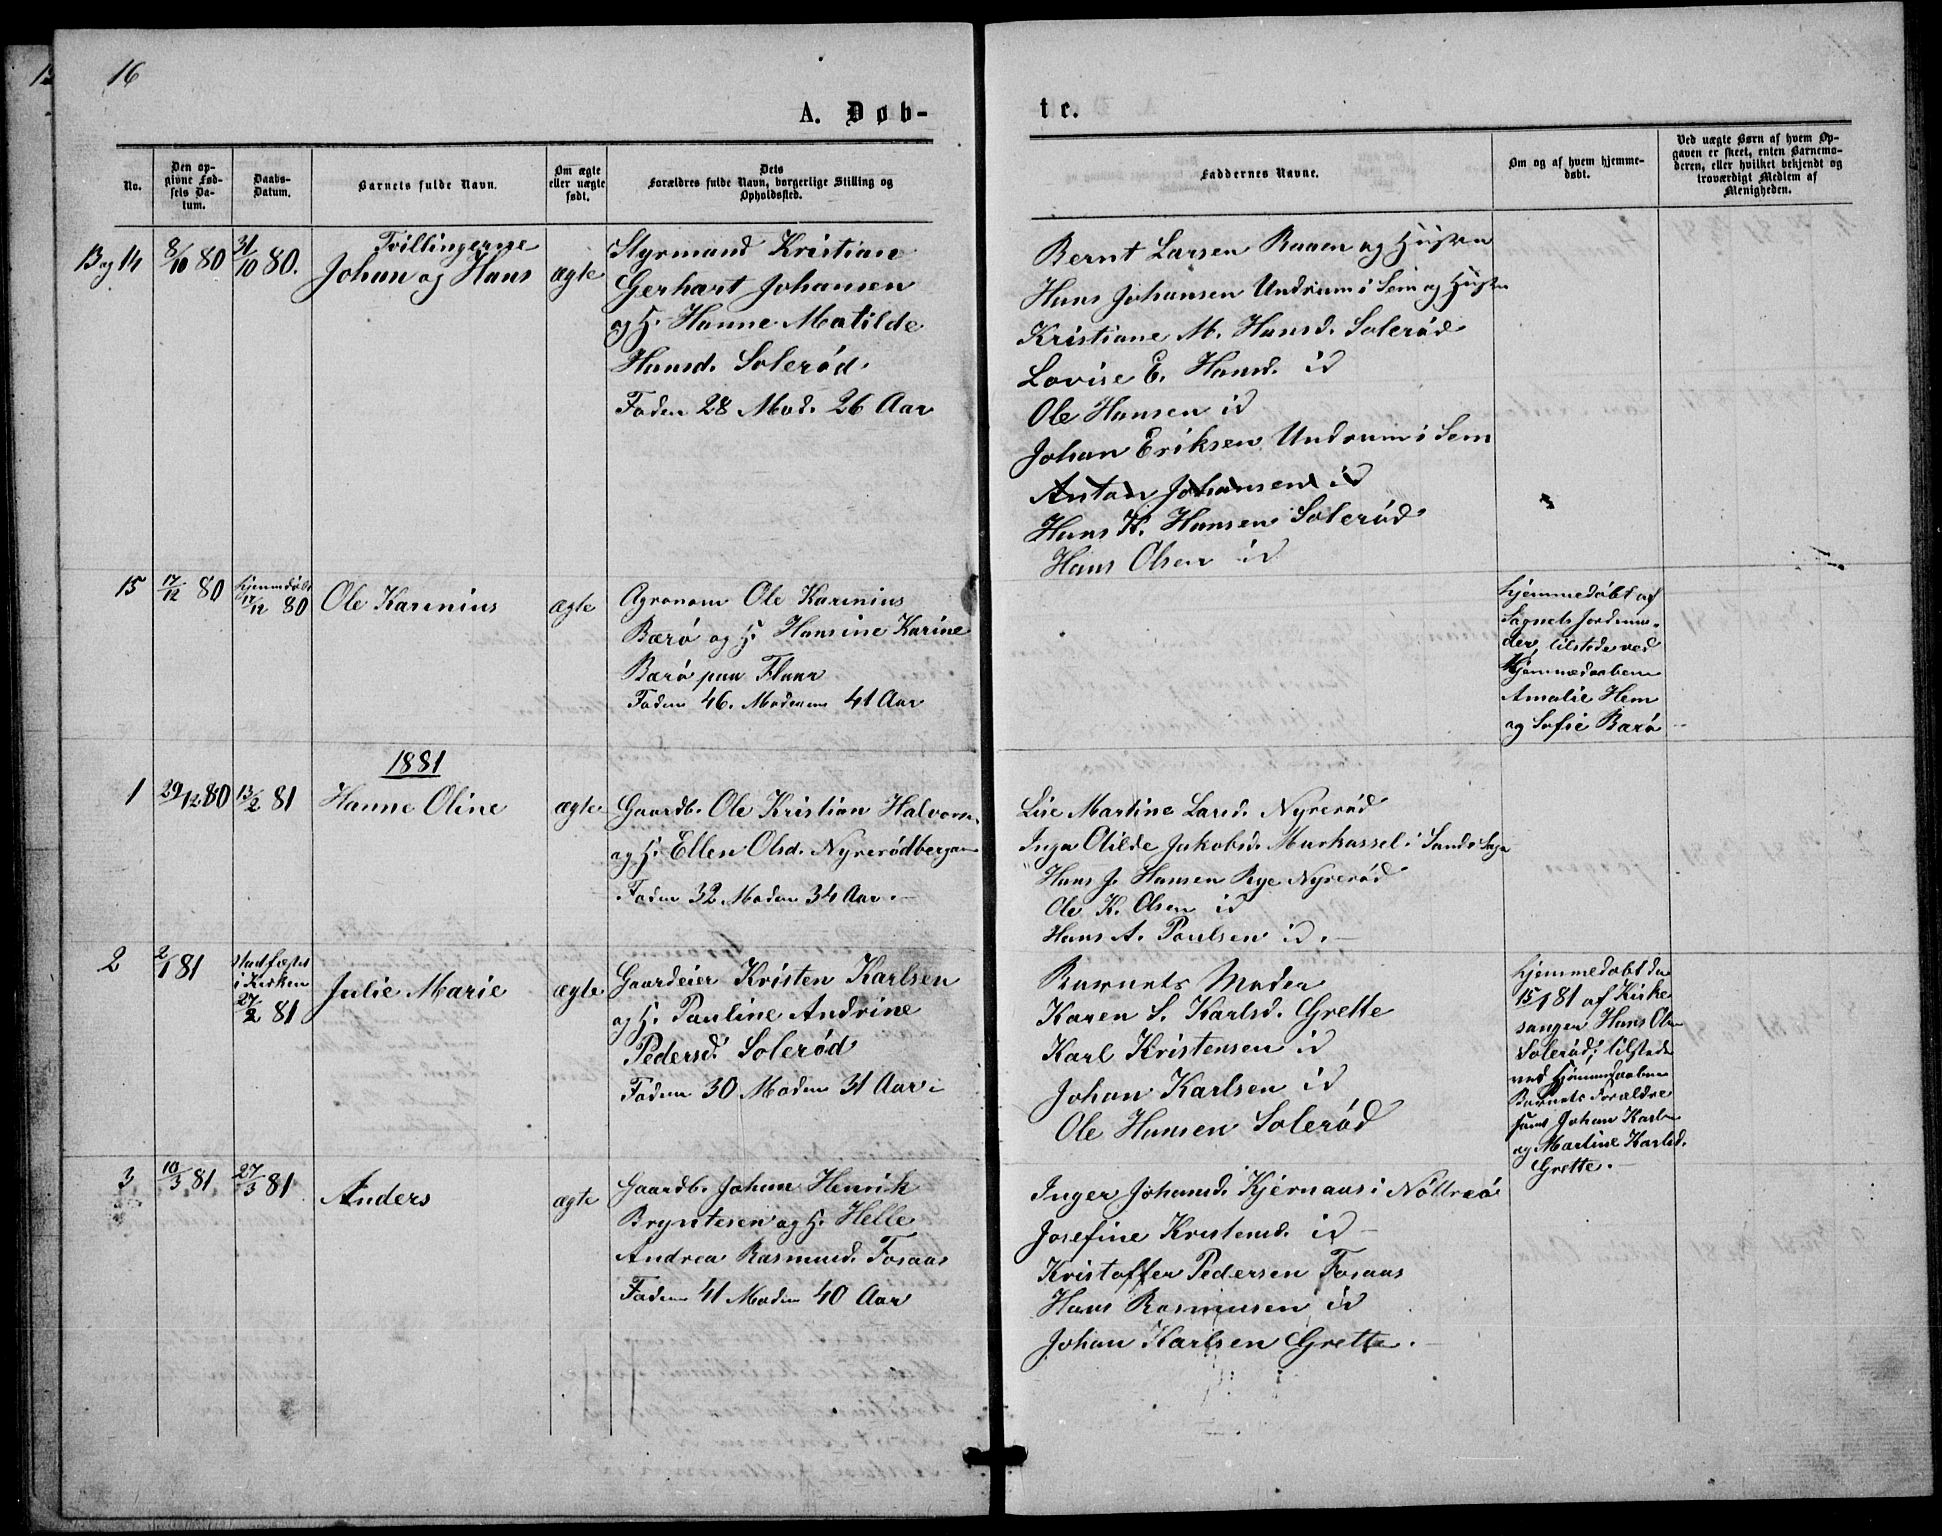 16
A. Døb-
te.
No.
Den op-
givne Fød-
sels Da-
tum.
Daabs-
Datum.
Barnets fulde Navn.
Om ægte
eller uægte
født.
Dets
Forældres fulde Navn, borgerlige Stilling og
Opholdssted.
Faddernes Navne.
Om og af hvem hjemme-
døbt.
Ved uægte Børn af hvem Op-
gaven er skeet, enten Barnemo-
deren, eller hvilket bekjendt og
troværdigt Medlem af
Menigheden.
13 og 14
8/10 80
31/10 80.
Tvillingerne
Johan og Hans
ægte
Styrmand Kristian
Gerhart Johansen
og H. Hanne Matilde
Hansd. Solerød.
Faden 28 Mod. 26 Aar
Bernt Larsen Raaen og Hustru
Hans Johansen Undrum i Sem og Hustru
Kristiane M. Hansd. Solerød
Lovise E. Hansd. id
Ole Hansen id
Johan Eriksen Undrum i Sem
Anton Johansen id
Hans K. Hansen Solerød
Hans Olsen id
15
17/12 80
hjemmedøbt
17/12 80
Ole Karenius
ægte
Agronom Ole Karenius
Barø og H. Hansine Karine
Barø paa Flaar
Faden 46. Moderen 41 Aar
hjemmedøbt af
Sognets Jordemo-
der, tilstede ved
Hjemmedaaben
Amalie Hem
og Sofie Barø
1881
1
29/12 80
13/2 81
Hanne Oline
ægte
Gaardb. Ole Kristian Halvorsn.
og H. Ellen Olsd. Nyrerødbergan
Faden 32 Moden 34 Aar.
Lise Martine Larsd. Nyrerød
Inga Otilde Jakobsd. Murkassel i Sande Sogn
Hans J. Hansen Rye Nyrerød
Ole K. Olsen id
Hans A. Poulsen id.
2
2/1 81
stadfæstet
i Kirken
27/2 81
Julie Marie
ægte
Gaardeier Kristen Karlsen
og H. Pauline Andrine
Pedersd. Solerød
Faden 30 Moden 31 Aar
Barnets Moder
Karen S. Karlsd. Grette
Karl Kristensen id
Johan Karlsen id
Ole Hansen Solerød
hjemmedøbt den
15/1 81 af Kirke
sanger Hans Olsen
Solerød; tilstede
ved Hjemmedaaben
Barnets Forældre
samt Johan Karlsen
og Martine Karlsd.
Grette.
3
10/3 81
27/3 81
Anders
ægte
Gaardb. Johan Henrik
Bryntesen og H. Helle
Andrea Rasmusd. Fosaas
Faden 41 Moden 40 Aar
Inger Johansd. Kjærnaas i Nøtterø
Josefine Kristensd. id
Kristoffer Pedersen Fosaas
Hans Rasmusen id
Johan Karlsen Grette.